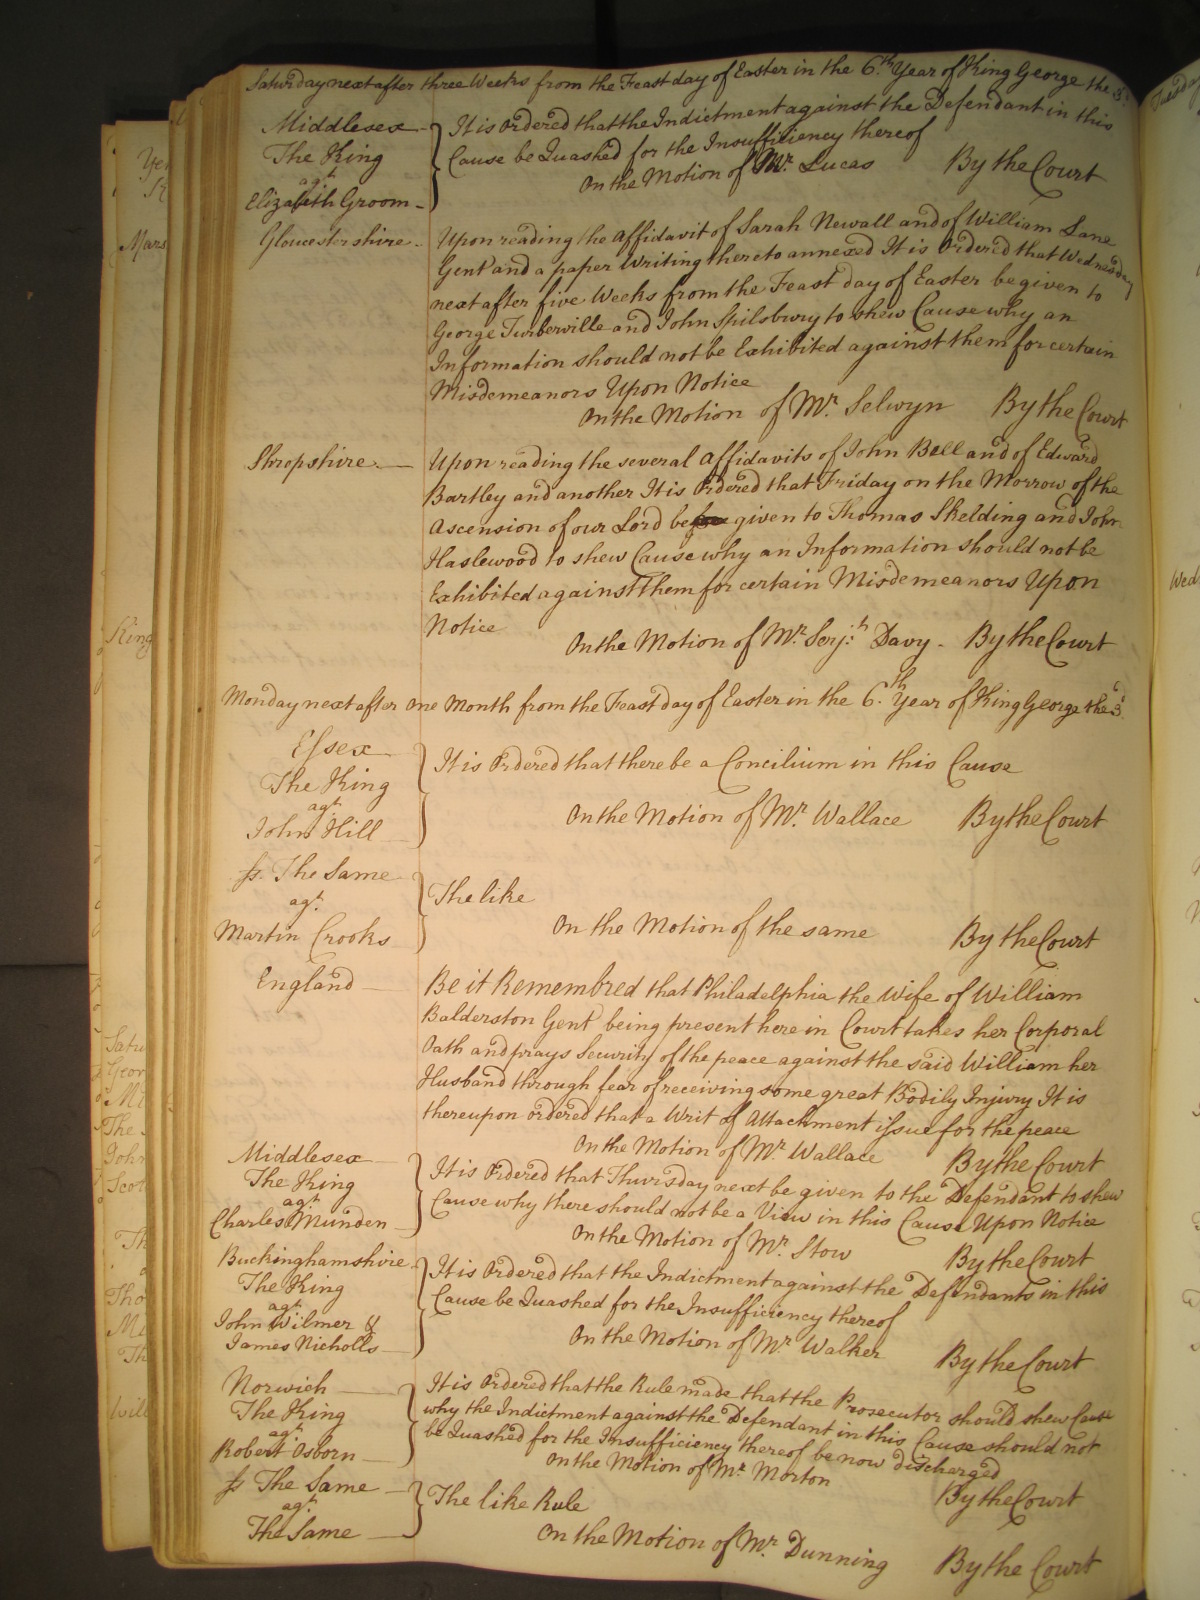 Saturday next after three Weeks from the Feast day of Easter in the 6.th Year of King George the 3.d
Middlesex
The King
agt
Elizabeth Groom
It is Ordered that the Indictment against the Defendant in this
Cause be Quashed for the Insufficiency thereof
On the Motion of Mr. Lucas By the Court
Gloucestershire
Upon reading the affidavit of Sarah Newall and of William Lane
Gent and a paper Writing thereto annexed It is Ordered that Wednesday
next after five Weeks from the Feast day of Easter be given to
George Turberville and John Spilsbury to shew Cause why an
Information should not be Exhibited against them for certain
Misdemeanors Upon Notice
On the Motion of Mr. Selwyn By the Court
Shropshire
Upon reading the several affidavits of John Bell and of Edward
Bartley and another It is Ordered that Friday on the Morrow of the
Ascension of our Lord be given to Thomas Skelding and John
Haslewood to shew Cause why an Information should not be
Exhibited against them for certain Misdemeanors Upon
Notice
On the Motion of Mr. Serj.t Davy. By the Court
Monday next after One Month from the Feast day of Easter in the 6.th Year of King George the 3.d
Essex
The King
agt
John Hill
It is Ordered that there be a Concilium in this Cause
On the Motion of Mr. Wallace By the Court
ss. The Same
agt.
Martin Crooks
The like
On the Motion of the same By the Court
England
Be it Remembred that Philadelphia the Wife of William
Balderston Gent being present here in Court takes her Corporal
Oath and prays Security of the peace against the said William her
Husband through fear of receiving some great Bodily Injury It is
thereupon ordered that a Writ of Attachment issue for the peace
On the Motion of Mr Wallace By the Court
Middlesex
The King
agt
Charles Munden
It is Ordered that Thursday next be given to the Defendant to shew
Cause why there should not be a View in this Cause Upon Notice
On the Motion of Mr. Stow By the Court
Buckinghamshire
The King
agt
John Wilmer &
James Nicholls
It is Ordered that the Indictment against the Defendants in this
Cause be Quashed for the Insufficiency thereof
On the Motion of Mr Walker By the Court
Norwich
The King
agt
Robert Osborn
It is Ordered that the Rule made that the Prosecutor should shew Cause
why the Indictment against the Defendant in this Cause should not
be Quashed for the Insufficiency thereof be now discharged
On the Motion of Mr. Morton By the Court
ss The Same
agt
The Same
The like Rule
On the Motion of Mr. Dunning By the Court